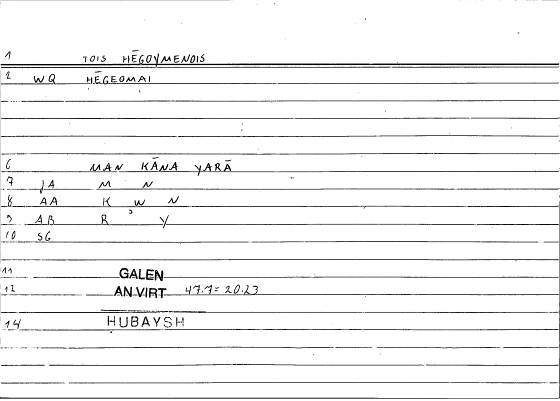 1 TOIS HĒGOYMENOIS
2 WQ HĒGEOMAI
6 MAN KĀNA YARĀ
7 JA M N
8 AA K W N
9 AB R ʾ Y
10 SG
11 GALEN
12 AN VIRT 47.7 = 20.23
14 HUBAYSH